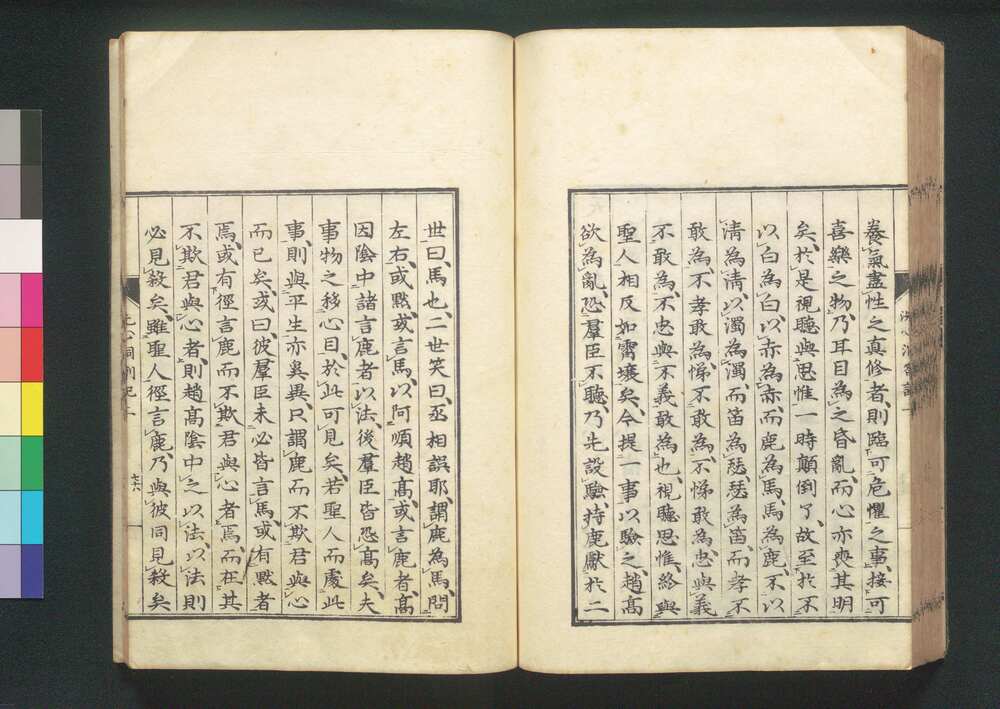 養氣盡性之真修者、則臨可危懼之事、接可
喜樂之物、乃耳目為之昏亂、而心亦喪其明
矣、於是視聽與思惟一時顛倒了、故至於不
以白為白、以赤為赤、而鹿為馬、馬為鹿、不以
清為清、以濁為濁、而笛為瑟、瑟為笛、而孝不
敢為、不孝敢為、悌不敢為、不悌敢為、忠與義
不敢為、不忠與不義敢為也、視聽思惟、終與
聖人相反、如霄壤矣、今提一事以驗之、趙高
欲為亂、恐群臣不聽、乃先設驗、持鹿獻於二
世曰、馬也、二世笑曰、丞相誤耶、謂鹿為馬、問
左右、或默、或言馬、以阿順趙高、或言鹿者、高
因陰中諸言鹿者以法、後羣臣皆恐高矣、夫
事物之移心目、於此可見矣、若聖人而處此
事、則與平生亦奚異、只謂鹿而不欺君與心
而已矣、或曰彼羣臣未必皆言馬、或有默者
焉、或有徑言鹿而不欺君與心者焉、而在其
不欺君與心者、則趙高陰中之以法、以法則
必見殺矣、雖聖人徑言鹿、乃與彼同見殺矣
洗心洞劄記
七六